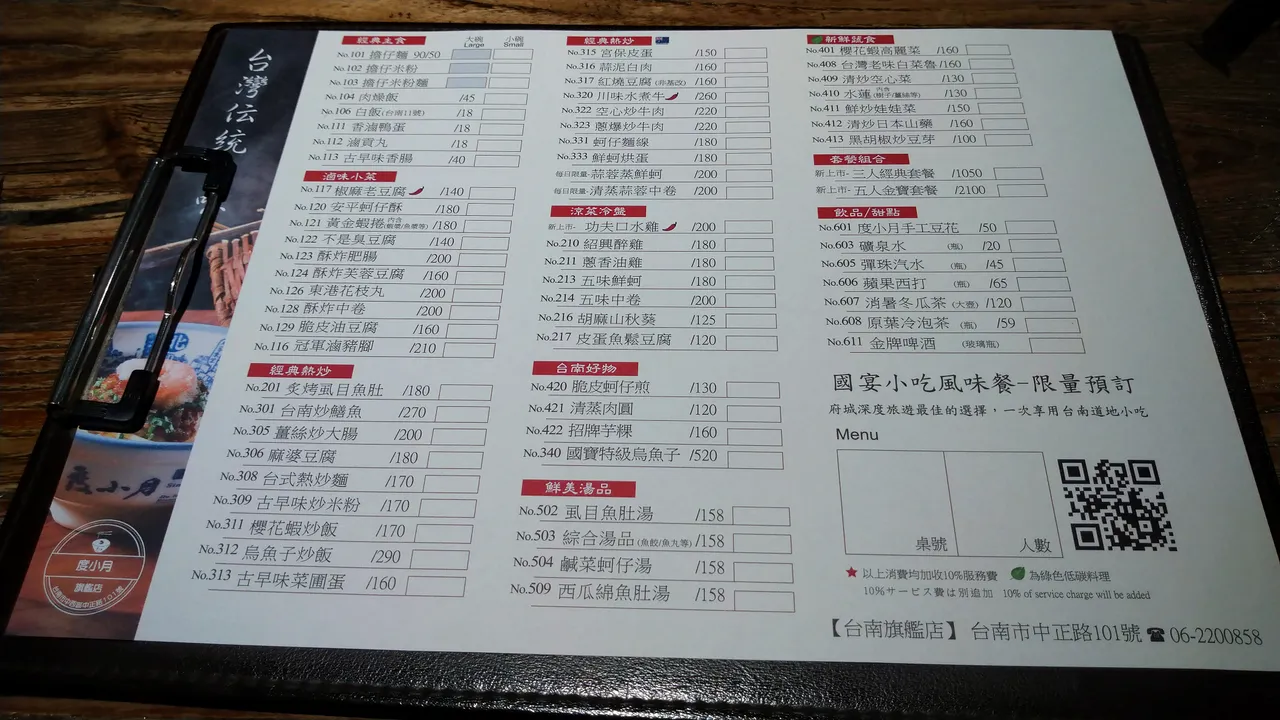 台灣伝統
度小月
旗艦店
台南市中西區中正路101號
經典主食
大碗 小碗
Large Small
No.101 擔仔麵 90/50
No.102 擔仔米粉
No.103 擔仔米粉麵
No.104 肉燥飯 /45
No.106 白飯(台南11號) /18
No.111 香滷鴨蛋 /18
No.112 滷貢丸 /18
No.113 古早味香腸 /40
滷味小菜
No.117 椒麻老豆腐 /140
No.120 安平蚵仔酥 /180
No.121 黃金蝦捲 內含(蝦漿/魚漿等) /180
No.122 不是臭豆腐 /140
No.123 酥炸肥腸 /200
No.124 酥炸芙蓉豆腐 /160
No.126 東港花枝丸 /200
No.128 酥炸中卷 /200
No.129 脆皮油豆腐 /160
No.116 冠軍滷豬腳 /210
經典熱炒
No.201 炙烤虱目魚肚 /180
No.301 台南炒鱔魚 /270
No.305 薑絲炒大腸 /200
No.306 麻婆豆腐 /180
No.308 台式熱炒麵 /170
No.309 古早味炒米粉 /170
No.311 櫻花蝦炒飯 /170
No.312 烏魚子炒飯 /290
No.313 古早味菜圃蛋 /160
經典熱炒
No.315 宮保皮蛋 /150
No.316 蒜泥白肉 /160
No.317 紅燒豆腐 (非基改) /160
No.320 川味水煮牛 /260
No.322 空心炒牛肉 /220
No.323 蔥爆炒牛肉 /220
No.331 蚵仔麵線 /180
No.333 鮮蚵烘蛋 /180
每日限量- 蒜蓉蒸鮮蚵 /200
每日限量- 清蒸蒜蓉中卷 /200
涼菜冷盤
新上市- 功夫口水雞 /200
No.210 紹興醉雞 /180
No.211 蔥香油雞 /180
No.213 五味鮮蚵 /180
No.214 五味中卷 /200
No.216 胡麻山秋葵 /125
No.217 皮蛋魚鬆豆腐 /120
台南好物
No.420 脆皮蚵仔煎 /130
No.421 清蒸肉圓 /120
No.422 招牌芋粿 /160
No.340 國寶特級烏魚子 /520
鮮美湯品
No.502 虱目魚肚湯 /158
No.503 綜合湯品 (魚餃/魚丸等) /158
No.504 鹹菜蚵仔湯 /158
No.509 西瓜綿魚肚湯 /158
新鮮蔬食
No.401 櫻花蝦高麗菜 /160
No.408 台灣老味白菜魯 /160
No.409 清炒空心菜 /130
No.410 水蓮 內含(樹子/薑絲等) /130
No.411 鮮炒娃娃菜 /150
No.412 清炒日本山藥 /160
No.413 黑胡椒炒豆芽 /100
套餐組合
新上市- 三人經典套餐 /1050
新上市- 五人金寶套餐 /2100
飲品/甜點
No.601 度小月手工豆花 /50
No.603 礦泉水 (瓶) /20
No.605 彈珠汽水 (瓶) /45
No.606 蘋果西打 (瓶) /65
No.607 消暑冬瓜茶 (大壺) /120
No.608 原葉冷泡茶 (瓶) /59
No.611 金牌啤酒 (玻璃瓶)
國宴小吃風味餐-限量預訂
府城深度旅遊最佳的選擇，一次享用台南道地小吃
Menu
桌號 人數
★ 以上消費均加收10%服務費 為綠色低碳料理
10%サービス費は別追加 10% of service charge will be added
【台南旗艦店】 台南市中正路101號 ☎ 06-2200858